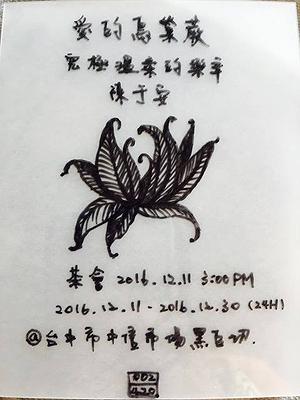 愛的鳥巢蕨
究極溫柔的樂章
陳于安
茶會 2016.12.11 3:00PM
2016.12.11-2016.12.30 (24H)
@台中市中潭市場黑白切.